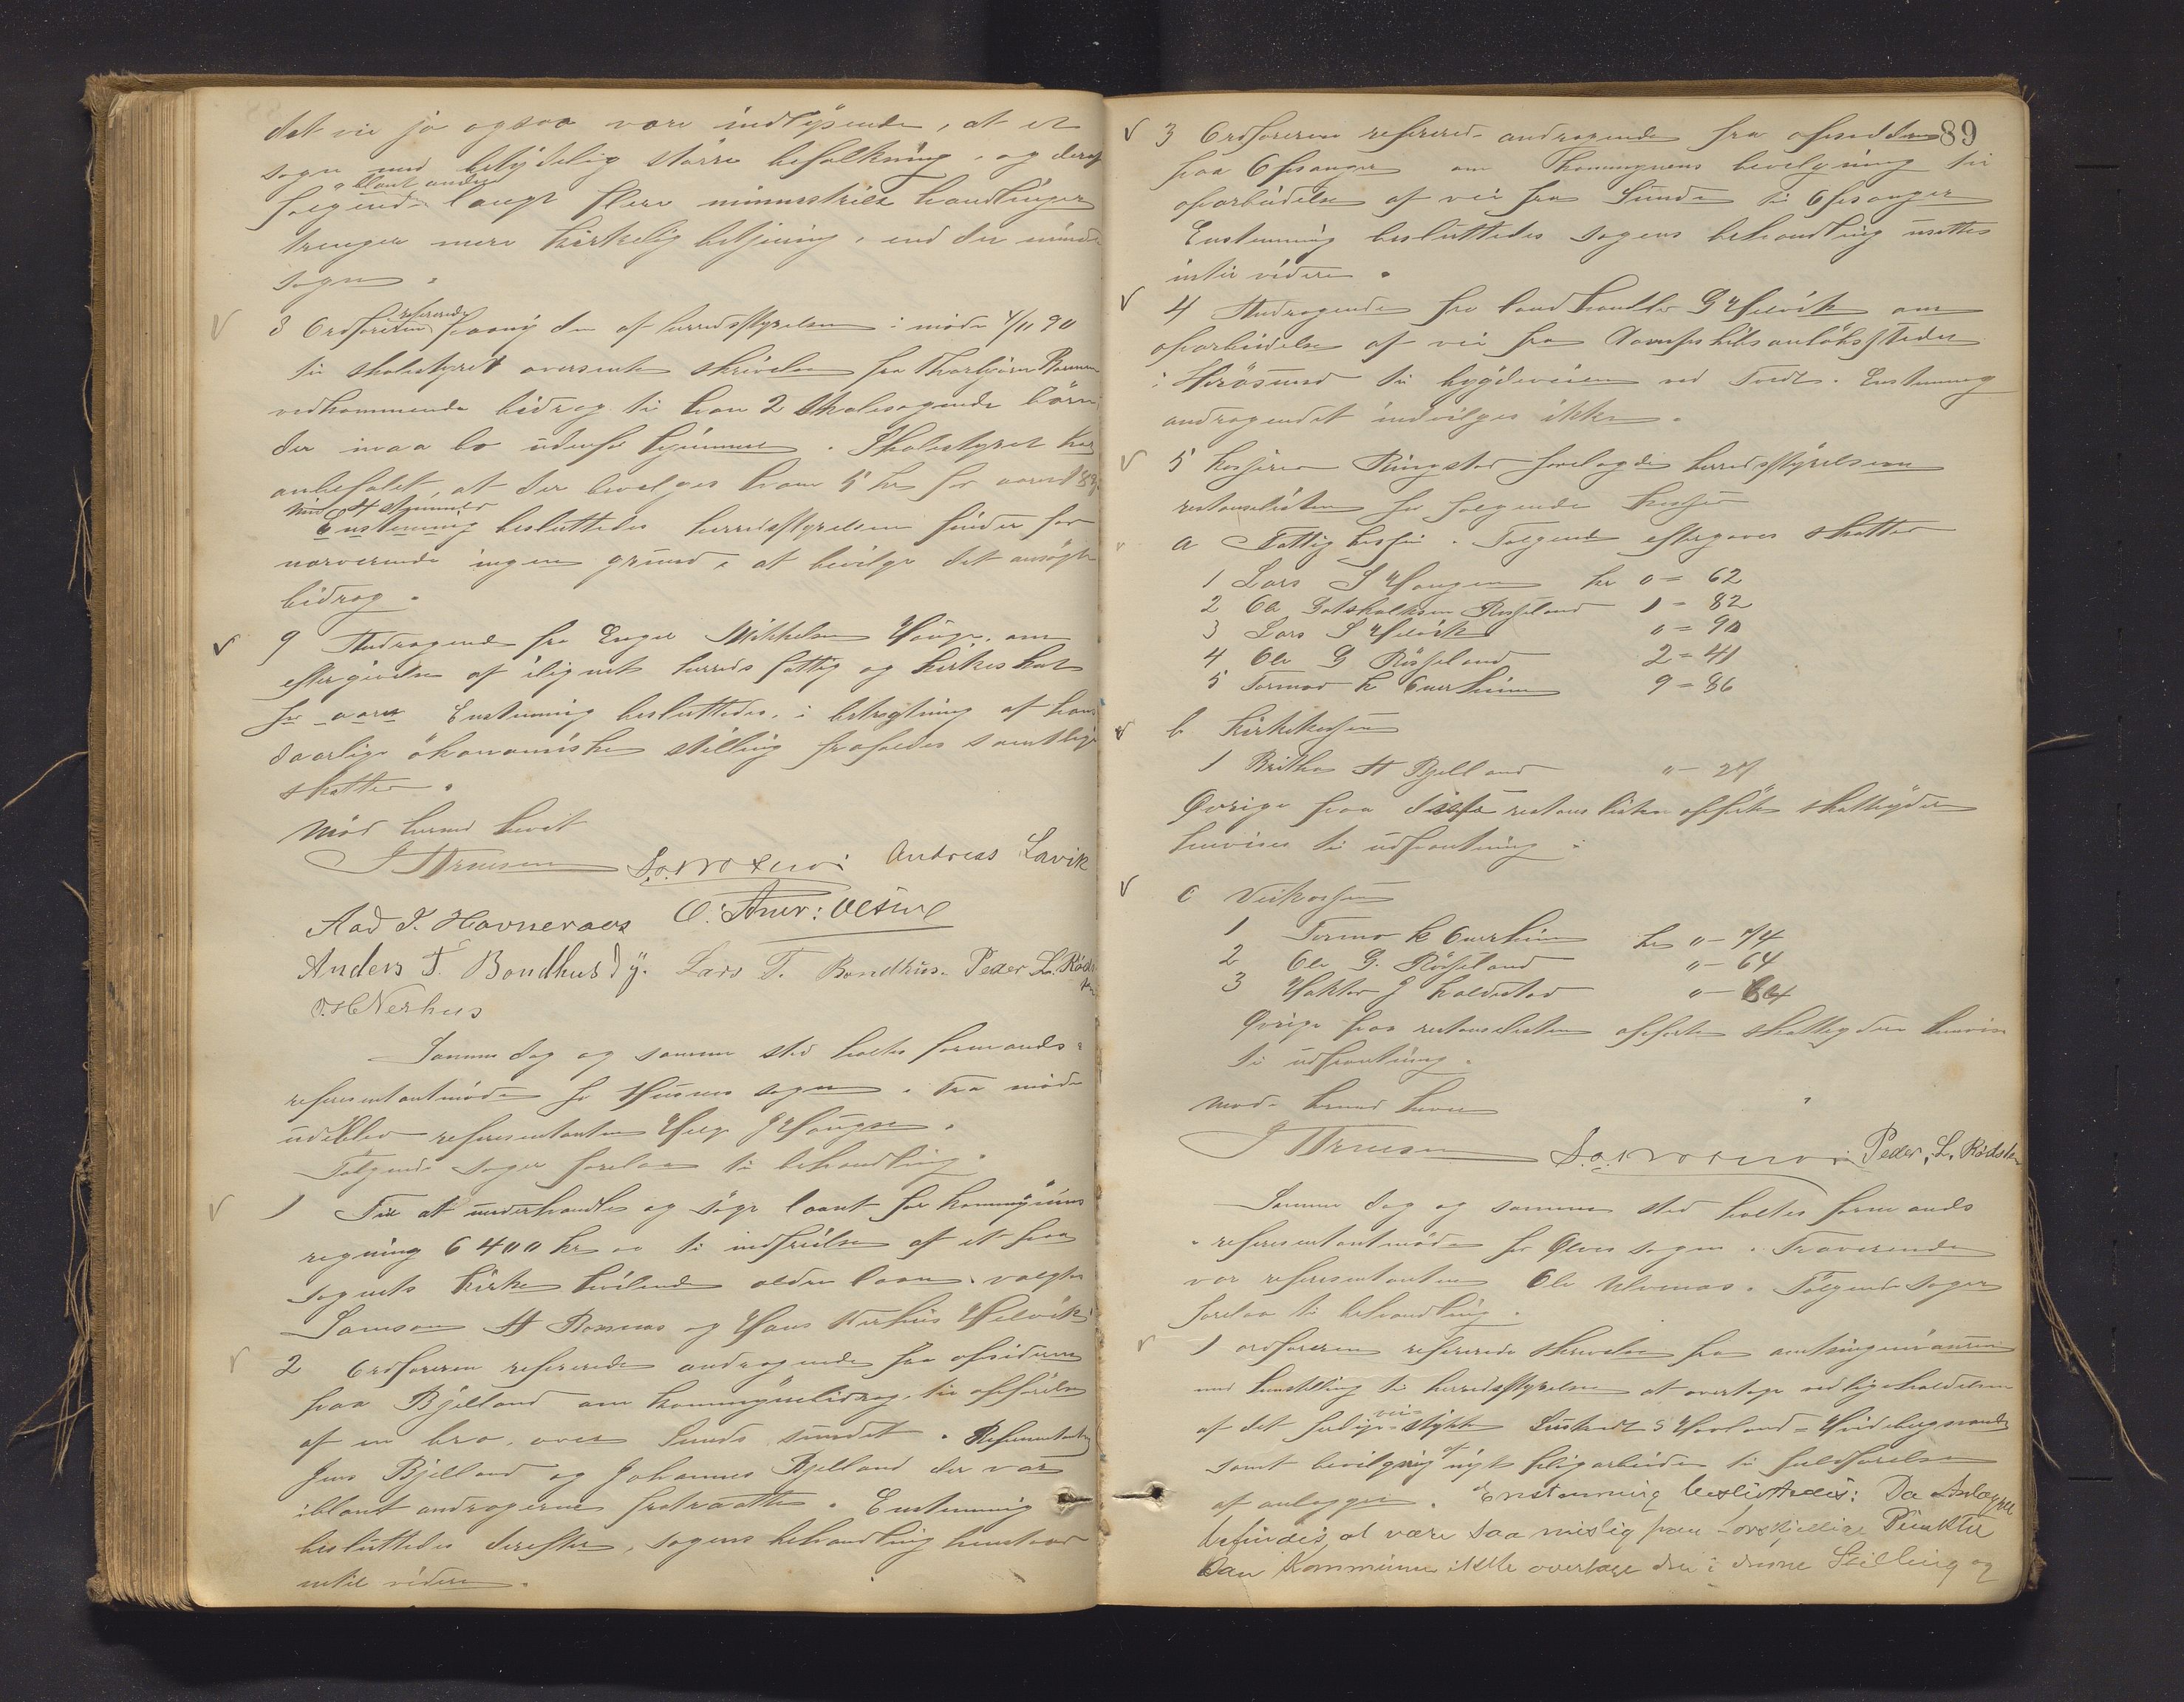 det vil jo ogsaa være indlysende, at et
sogn med betydelig större befolkning, og deraf
blant andet
følgende langt flere ministrielle handlinger
trenger mere kirkelig betjening, end det mindre
sogn.
8 Ordføreren refererede paany den af herredsstyrelsen i møde 4/11 90
til skolestyret oversente skrivelse fra Thorbjørn
vedkommende bidrag til han 2 skolesøgende börn,
der maa bo udenfor hjemmet. Skolestyret har
anbefalet, at der bevilges ham 5 kr for aaret
Mod 4 stemmer
Enstemmig besluttedes herredsstyrelsen finder for
nærværende ingen grund, at bevilge det ansögte
bidrag.
9 Andragende fra Engel Mikkelsen Hauge, om
eftergivelse af ilignet herreds fattig og kirkeskat
for aaret Enstemmig besluttedes, i betragtning af hans
daarlige ökonomiske stilling frafaldes samtlige
skatter.
Møde herved hevet
Andreas Lavik
Aad J. Havneraas
Anders T. Bondhus Lars T. Bondhus. Peder L. Röd
Nerhus
Samme dag og samme sted holtes formands-
representantmöde for Husnes sogn. Fra mödet
udeblev representanten Helge J Haugse.
Følgende sager forelaa til behandling.
1 Til at underhandle og søge laant for kommunens
regning 6400 kr til indfrielse af et paa
sognets kirke hvilende ældre laan valgtes
Samson A og Hans Nerhus Helvik
2 Ordføreren refererede andragende fra opsidderne
paa Bjelland om kommunebidrag til opförelse
af en bro over Sunde sundet. Representanterne
Jens Bjelland og Johannes Bjelland der var
iblant andragerne fratraatte. Enstemmig
besluttedes derefter, sagens behandling henstaar
intil videre.
89
3 Ordføreren refererede andragende fra opsidderne
paa Opsanger om kommunens bevilgning til
oparbeidelse af vei fra Sunde til Opsanger
Enstemmig besluttedes sagens behandling utsettes
intil videre.
4 Andragende fra landhandler G Helvik om
oparbeidelse af vei fra Dampskibsanløbsstedet
i Herösund til bygdeveien ved Tvedt. Enstemmig
andragendet indvilges ikke.
5 kasserer Ringstad forelagde herredsstyrelsen
restanselisten for følgende kasser
a Fattigkassen. Følgende eftergaves skatter
1 Lars S Haugen kr 0 = 62
2 Ole Gotskalksen Røsseland 1 = 82
3 Lars S Helvik 0 = 90
4 Ole G Røsseland 2 = 41
5 Tormod K Guerheim 9 = 86
b Kirkekassen
1 Britha A Bjelland " - 27
Øvrige paa disse restanselister opførte skatteydere
henvises til udpantning.
c Veikassen
1 Tormo K Guerheim kr " - 74
2 Ole G. Røsseland " - 64
3 Haktor J Haldestad " - 64
Øvrige paa restanselisten opførte skatteydere henvises
til udpantning.
Møde herved hevet
Peder, L. Rödste
Samme dag og samme sted holtes formands
- representantmöde for Ølve sogn. Fraværende
var representanten Ole Ulvenas. Følgende sager
forelaa til behandling.
1 ordføreren refererede skrivelse fra amtsingeniøren
med henstilling til herredsstyrelsen at overtage vedligeholdelsen
af det ferdige vei- stykke Haaland = Hvidebergsvand
samt bevilgning af nyt pligtarbeide til fuldførelse
af anlægget. Enstemmig besluttedes: Da Anlægget
befindes, at være saa mislig paa forskjellige Punkter
kan Kommunen ikke overtage det i denne Stilling og